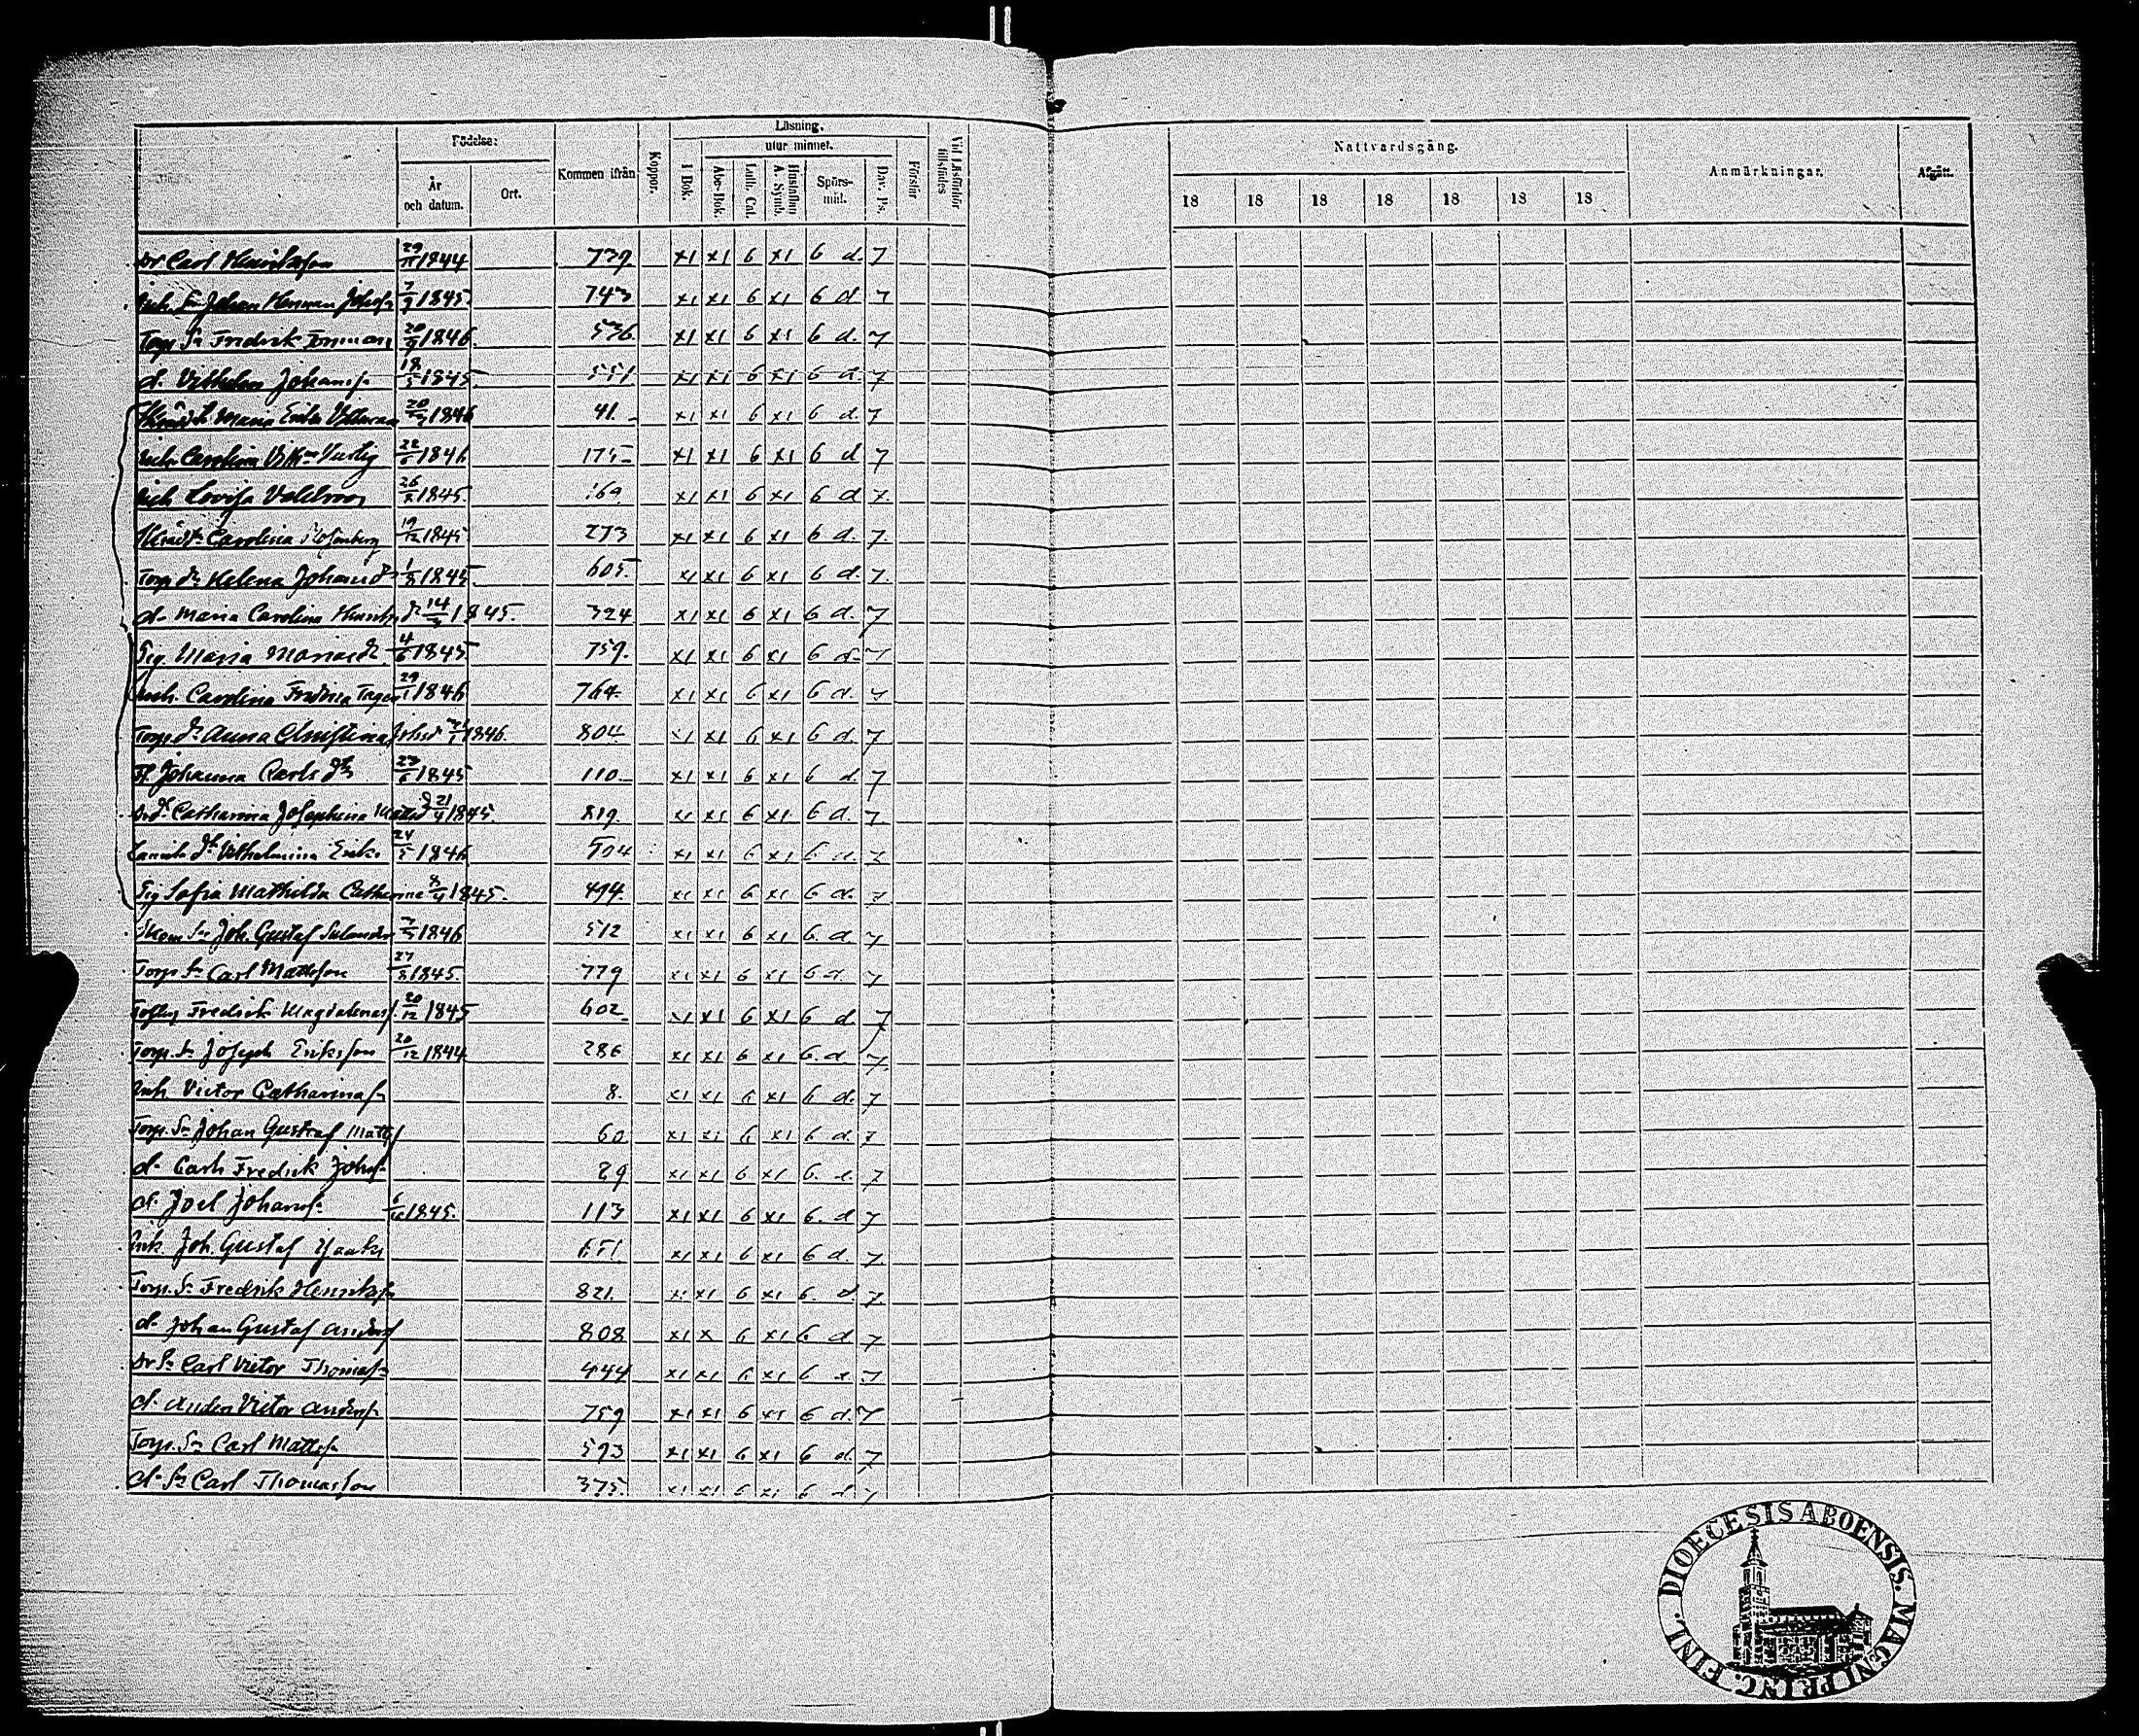 Födelse: Läsning.
utur minnet.
År och datum. Ort. Kommen ifrån Koppor. I Bok. Abc-Bok. Luth. Cat. Hustaflan A. Symb. Spörs-mål. Dav. Ps. Förstår Vid Läsförhör tillstädes
Nattvardsgång. Anmärkningar. Afgått.
18 18 18 18 18 18 18
Dr Carl 29/11 1844 779 x1 x1 6 x1 6 d. 7
Inh. Sn Johan Herman Johsn 7/9 1845 743 x1 x1 6 x1 6 d 7
Torp. Sn Fredrik Forsman 20/7 1846. 576. x1 x1 6 x1 6 d. 7
d. Vilhelm Johanss. 18/5 1845 551 x1 x1 6 x1 6 d. 7
Maria 20/3 1846 41. x1 x1 6 x1 6 d. 7
Inh. Carolina 22/6 1846 175 x1 x1 6 x1 6 d 7
Inh Lovisa 26/8 1845. 169 x1 x1 6 x1 6 d 7
Carolina Rosenberg 19/12 1845 273 x1 x1 6 x1 6 d. 7.
Torp. dr Helena Johansdr 1/8 1845. 605. x1 x1 6 x1 6 d. 7.
d. Maria Carolina 14/3 1845. 324 x1 x1 6 x1 6 d. 7
Pig. Maria Mariasdr 4/6 1845 759. x1 x1 6 x1 6 d. 7
Inh. Carolina 29/1 1846 764. x1 x1 6 x1 6 d. 7
Torp. dr Anna Christina Johsdr 1846. 804 x1 x1 6 x1 6 d. 7
Johanna Carls dr 23/6 1845 110. x1 x1 6 x1 6 d. 7
Catharina Josephina Mattsd 21/4 1845. 819. x1 x1 6 x1 6 d. 7.
Vilhelmina Eriks 24/5 1846 504 x1 x1 6 x1 6 d. 7
Pig Sofia Mathilda Catharina 8/4 1845. 494. x1 x1 6 x1 6 d. 7
Sn Joh. Gustaf 7/3 1846 512 x1 x1 6 x1 6. d. 7
Torp Sn Carl Mattsson 27/8 1845. 779 x1 x1 6 x1 6 d. 7
Fredrik Magdalenas. 20/12 1845 602. x1 x1 6 x1 6 d. 7
Torp. Sn Joseph Eriksson 20/12 1844 286 x1 x1 6 x1 6. d 7.
Inh. Victor Catharinas 8. x1 x1 6 x1 6 d. 7
Torp. Sn Johan Gustaf Matts 60 x1 x1 6 x1 6 d. 7
d. Carl Fredrik Johs. 29 x1 x1 6 x1 6. d. 7
d. Joel Johans. 6/10 1845. 113 x1 x1 6 x1 6. d 7
Inh. Joh. Gustaf 651 x1 x1 6 x1 6 d. 7
Torp. Sn Fredrik Henriks 821. x1 x1 6 x1 6. d 7.
d. Johan Gustaf Anders 808 x1 x 6 x1 6 d 7
Dr Sn Carl Victor Thomas 444 x1 x1 6 x1 6 7
d. Anders Victor Anders. 759 x1 x1 6 x1 6 d. 7
Torp. Sn Carl Matts. 593 x1 x1 6 x1 6 d. 7
d. Sn Carl Thomasson 375. x1 x1 6 x1 6 d 7
DIOECESIS ABOENSIS. MAGNI PRINC. FINL.